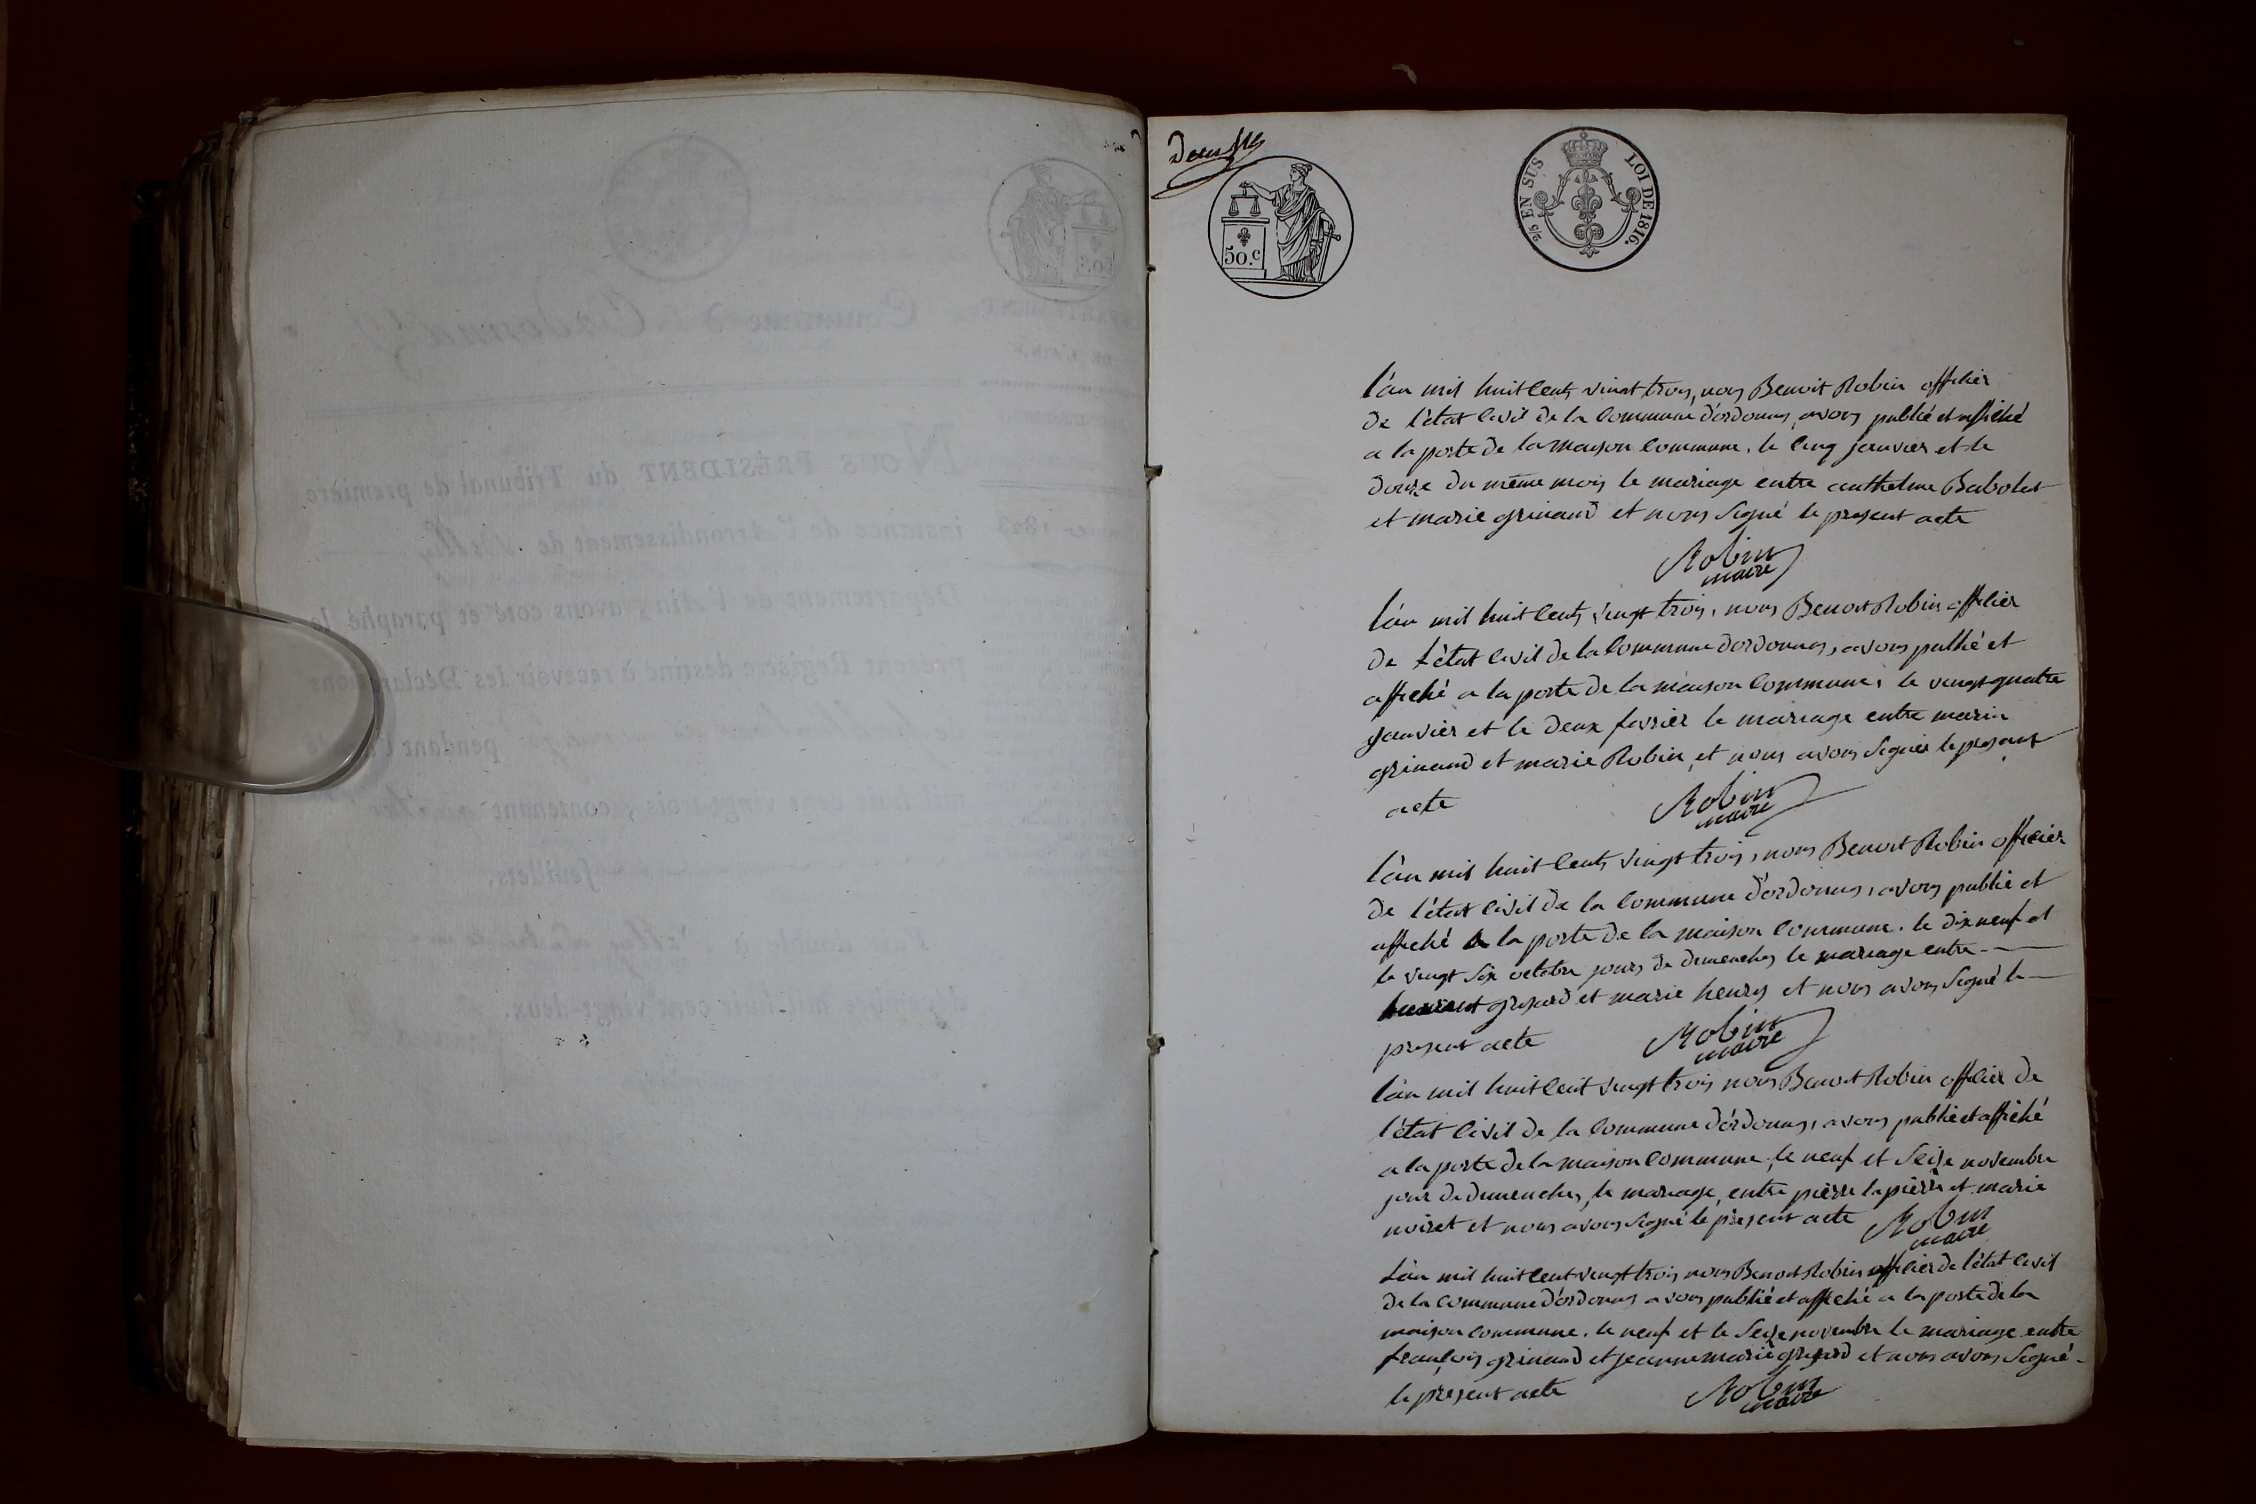 50.c
2/5 EN SUS LOI DE 1816.
l'an mil huit cents vingt trois, nous Benoit Robin officier
de l'état civil de la commune d'ordonnas, avons publié et affiché
a la porte de la maison commune, le cinq janvier et le
douze du même mois le mariage entre anthelme Babolat
et marie grinand et nous signé le present acte
Robin
maire
l'an mil huit cents vingt trois, nous Benoit Robin officier
de l'état civil de la commune dordonnas, avons publié et
affiché a la porte de la maison commune, le vingt quatre
janvier et le deux fevrier le mariage entre marin
grinand et marie Robin, et nous avons signés le present
acte
Robin
maire
l'an mil huit cents vingt trois, nous Benoit Robin officier
de l'état civil de la commune d'ordonnas, avons publié et
affiché a la porte de la maison commune. le dix neuf et
le vingt six octobre jours de dimenches le mariage entre
et marie henry et nous avons signé le
present acte
Robin
maire
l'an mil huit cent vingt trois nous Benoit Robin officier de
l'état civil de la commune d'ordonnas, avons publié et affiché
a la porte de la maison commune, le neuf et seize novembre
jour de dimenches, le mariage, entre pierre lapierre et marie
noiret et nous avons signé le present acte Robin
maire
L'an mil huit cent vingt trois nous Benoit Robin officier de l'état civil
de la commune d'ordonnas avons publié et affiché a la porte de la
maison commune. le neuf et le seize novembre le mariage entre
françois grinand et jeanne marie et nous avons signé
le present acte
Robin
maire